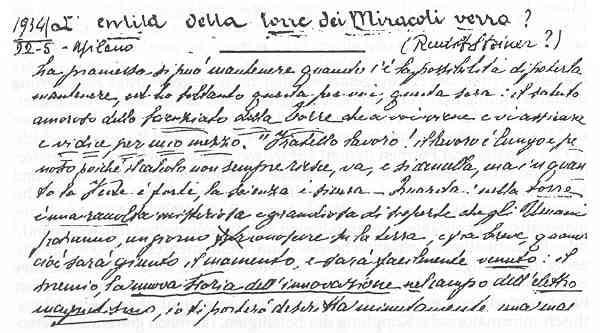 1934/a L' entità della torre dei Miracoli verrà?
22-5 - Milano (Rudolf Steiner?)
La promessa si può mantenere quando c'è la possibilità di poterla
mantenere, ed ho soltanto questa per voi, questa sera: il saluto
amoroso dello scienziato della Torre che a voi viene e vi
e vi dice per mio mezzo. "Fratello lavoro! il lavoro è lungo e pe
noso poiché il calcolo non sempre riesce, va, e si annulla, ma in quan
to la Fede è forte, la scienza è sicura - nella torre
è una raccolta misteriosa e grandiosa di scoperte che gli Umani
potranno, un giorno conoscere su la terra, e fra breve, quando
cioè sarà giunto il momento, e sarà facilmente venuto: il
premio, la nuova storia dell'innovazione nel campo dell'elettro
magnetismo, io ti porterò descritta minutamente una mac